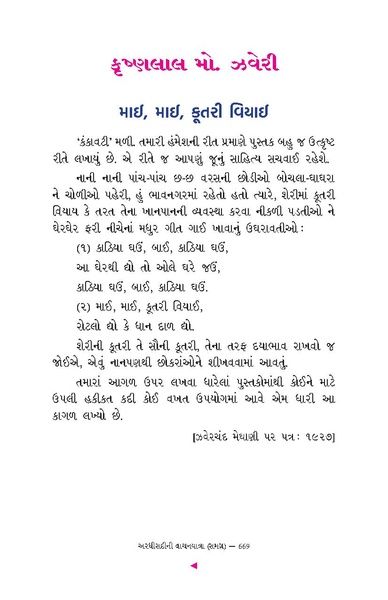 કૃષ્ણલાલ મો. ઝવેરી
માઇ, માઇ, કૂતરી વિયાઇ
‘કંકાવટી’ મળી. તમારી હંમેશની રીત પ્રમાણે પુસ્તક બહુ જ ઉત્કૃષ્ટ
રીતે લખાયું છે. એ રીતે જ આપણું જૂનું સાહિત્ય સચવાઈ રહેશે.
નાની નાની પાંચ-પાંચ છ-છ વરસની છોડીઓ બોચલા-ઘાઘરા
ને ચોળીઓ પહેરી, હું ભાવનગરમાં રહેતો હતો ત્યારે, શેરીમાં કૂતરી
વિયાય કે તરત તેના ખાનપાનની વ્યવસ્થા કરવા નીકળી પડતીઓ ને
ઘેરઘેર ફરી નીચેનાં મધુર ગીત ગાઈ ખાવાનું ઉઘરાવતીઓ :
(૧) કાઠિયા ઘઉં, બાઈ, કાઠિયા ઘઉં,
આ ઘેરથી દ્યો તો ઓલે ઘરે જઉં,
કાઠિયા ઘઉં, બાઈ, કાઠિયા ઘઉં.
(૨) માઈ, માઈ, કૂતરી વિયાઈ,
રોટલો દ્યો કે ધાન દાળ દ્યો.
શેરીની કૂતરી તે સૌની કૂતરી, તેના તરફ દયાભાવ રાખવો જ
જોઈએ, એવું નાનપણથી છોકરાંઓને શીખવવામાં આવતું.
તમારાં આગળ ઉપર લખવા ધારેલાં પુસ્તકોમાંથી કોઈને માટે
ઉપલી હકીકત કદી કોઈ વખત ઉપયોગમાં આવે એમ ધારી આ
કાગળ લખ્યો છે.
[ઝવેરચંદ મેઘાણી પર પત્ર : ૧૯૨૭]
અરધીસદીની વાચનયાત્રા (સમગ્ર) — 669